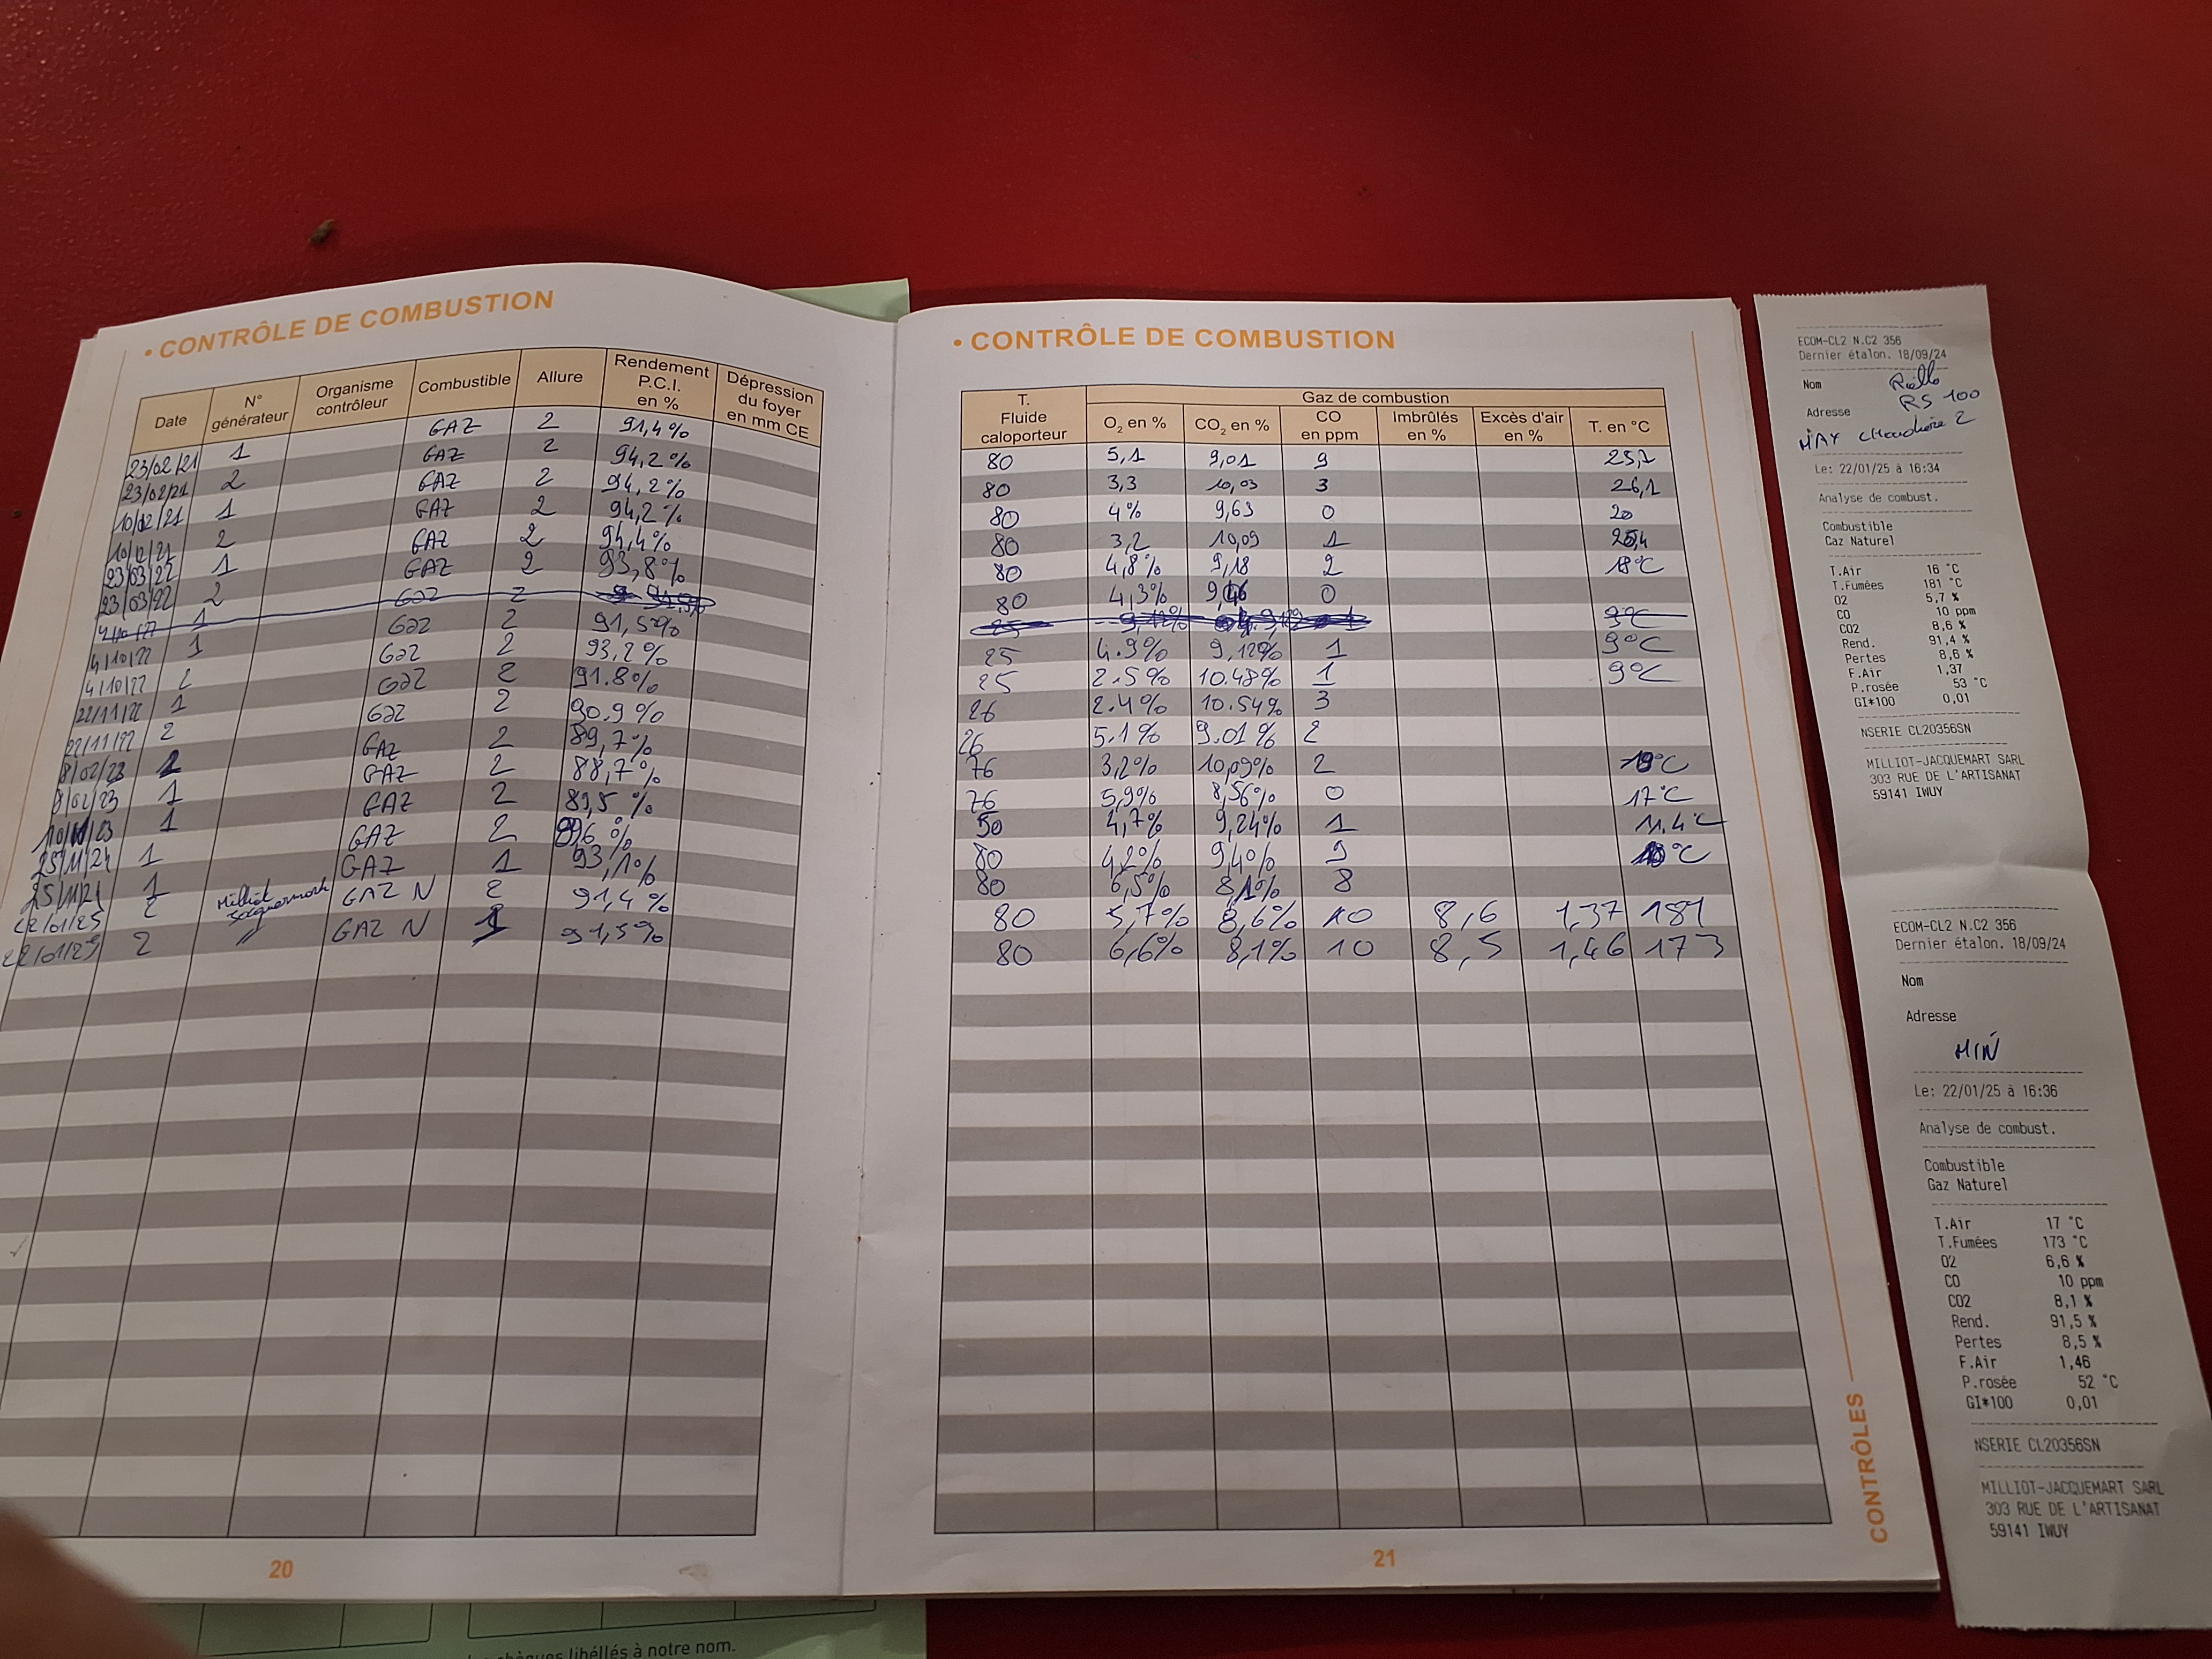 • CONTRÔLE DE COMBUSTION
Date N° générateur Organisme contrôleur Combustible Allure Rendement P.C.I. en % Dépression du foyer en mm CE
23/02/21 1 GAZ 2 91,4%
23/02/21 2 GAZ 2 94,2%
10/12/21 1 GAZ 2 94,2%
10/12/21 2 GAZ 2 94,2%
23/03/22 1 GAZ 2 94,4%
23/03/22 2 GAZ 2 93,8%
1 Gaz 2
4/10/22 1 Gaz 2 91,5%
4/10/22 2 Gaz 2 93,2%
22/11/22 1 Gaz 2 91.8%
22/11/22 2 Gaz 2 90.9%
8/02/23 GAZ 2 89,7%
8/02/23 1 GAZ 2 88,7%
23 1 GAZ 2 89,5 %
25/11/24 1 GAZ 2 %
25/11/24 1 GAZ 1 93,1%
22/01/25 2 Milliot Jacquemart GAZ N 2 91,4 %
22/01/25 2 // GAZ N 1 91,5%
20
• CONTRÔLE DE COMBUSTION
T. Fluide caloporteur Gaz de combustion
O2 en % CO2 en % CO en ppm Imbrûlés en % Excès d'air en % T. en °C
80 5,1 9,01 9 25,1
80 3,3 10,03 3 26,1
80 4% 9,63 0 20
80 3,2 10,09 1
80 4,8% 9,18 2 18°C
80 4,3% 0
25 9°C
25 4.9% 9,12% 1 9°C
25 2.5% 10.48% 1 9°C
26 2.4% 10.54% 3
26 5.1% 9.01% 2
76 3,2% 10,09% 2
76 5,9% 8,56% 0 17°C
50 4,7% 9,24% 1 11.4°C
80 4,2% 9,4% 9
80 6,5% 8,1% 8
80 5,7% 8,6% 10 8,6 1,37 181
80 6,6% 8,1% 10 8,5 1,46 173
CONTRÔLES
21
ECOM-CL2 N.C2 356
Dernier étalon. 18/09/24
Nom Riello
RS 100
Adresse
MAX Chaudière 2
Le: 22/01/25 à 16:34
Analyse de combust.
Combustible
Gaz Naturel
T.Air 16 °C
T.Fumées 181 °C
O2 5,7 %
CO 10 ppm
CO2 8,6 %
Rend. 91,4 %
Pertes 8,6 %
F.Air 1,37
P.rosée 53 °C
GI*100 0,01
NSERIE CL20356SN
MILLIOT-JACQUEMART SARL
303 RUE DE L'ARTISANAT
59141 IWUY
ECOM-CL2 N.C2 356
Dernier étalon. 18/09/24
Nom
Adresse
MIN
Le: 22/01/25 à 16:36
Analyse de combust.
Combustible
Gaz Naturel
T.Air 17 °C
T.Fumées 173 °C
O2 6,6 %
CO 10 ppm
CO2 8,1 %
Rend. 91,5 %
Pertes 8,5 %
F.Air 1,46
P.rosée 52 °C
GI*100 0,01
NSERIE CL20356SN
MILLIOT-JACQUEMART SARL
303 RUE DE L'ARTISANAT
59141 IWUY
chèques libéllés à notre nom.